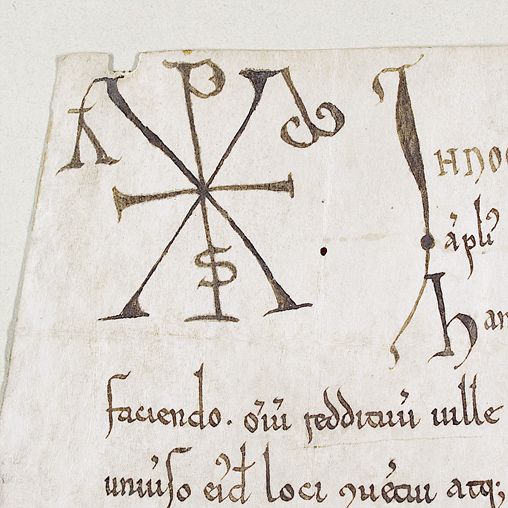 A P ω
S
INDO
ap̄li
han
faciendo. oīū redditaūū uille
uniūso eīd loci ꝯuētui atq;